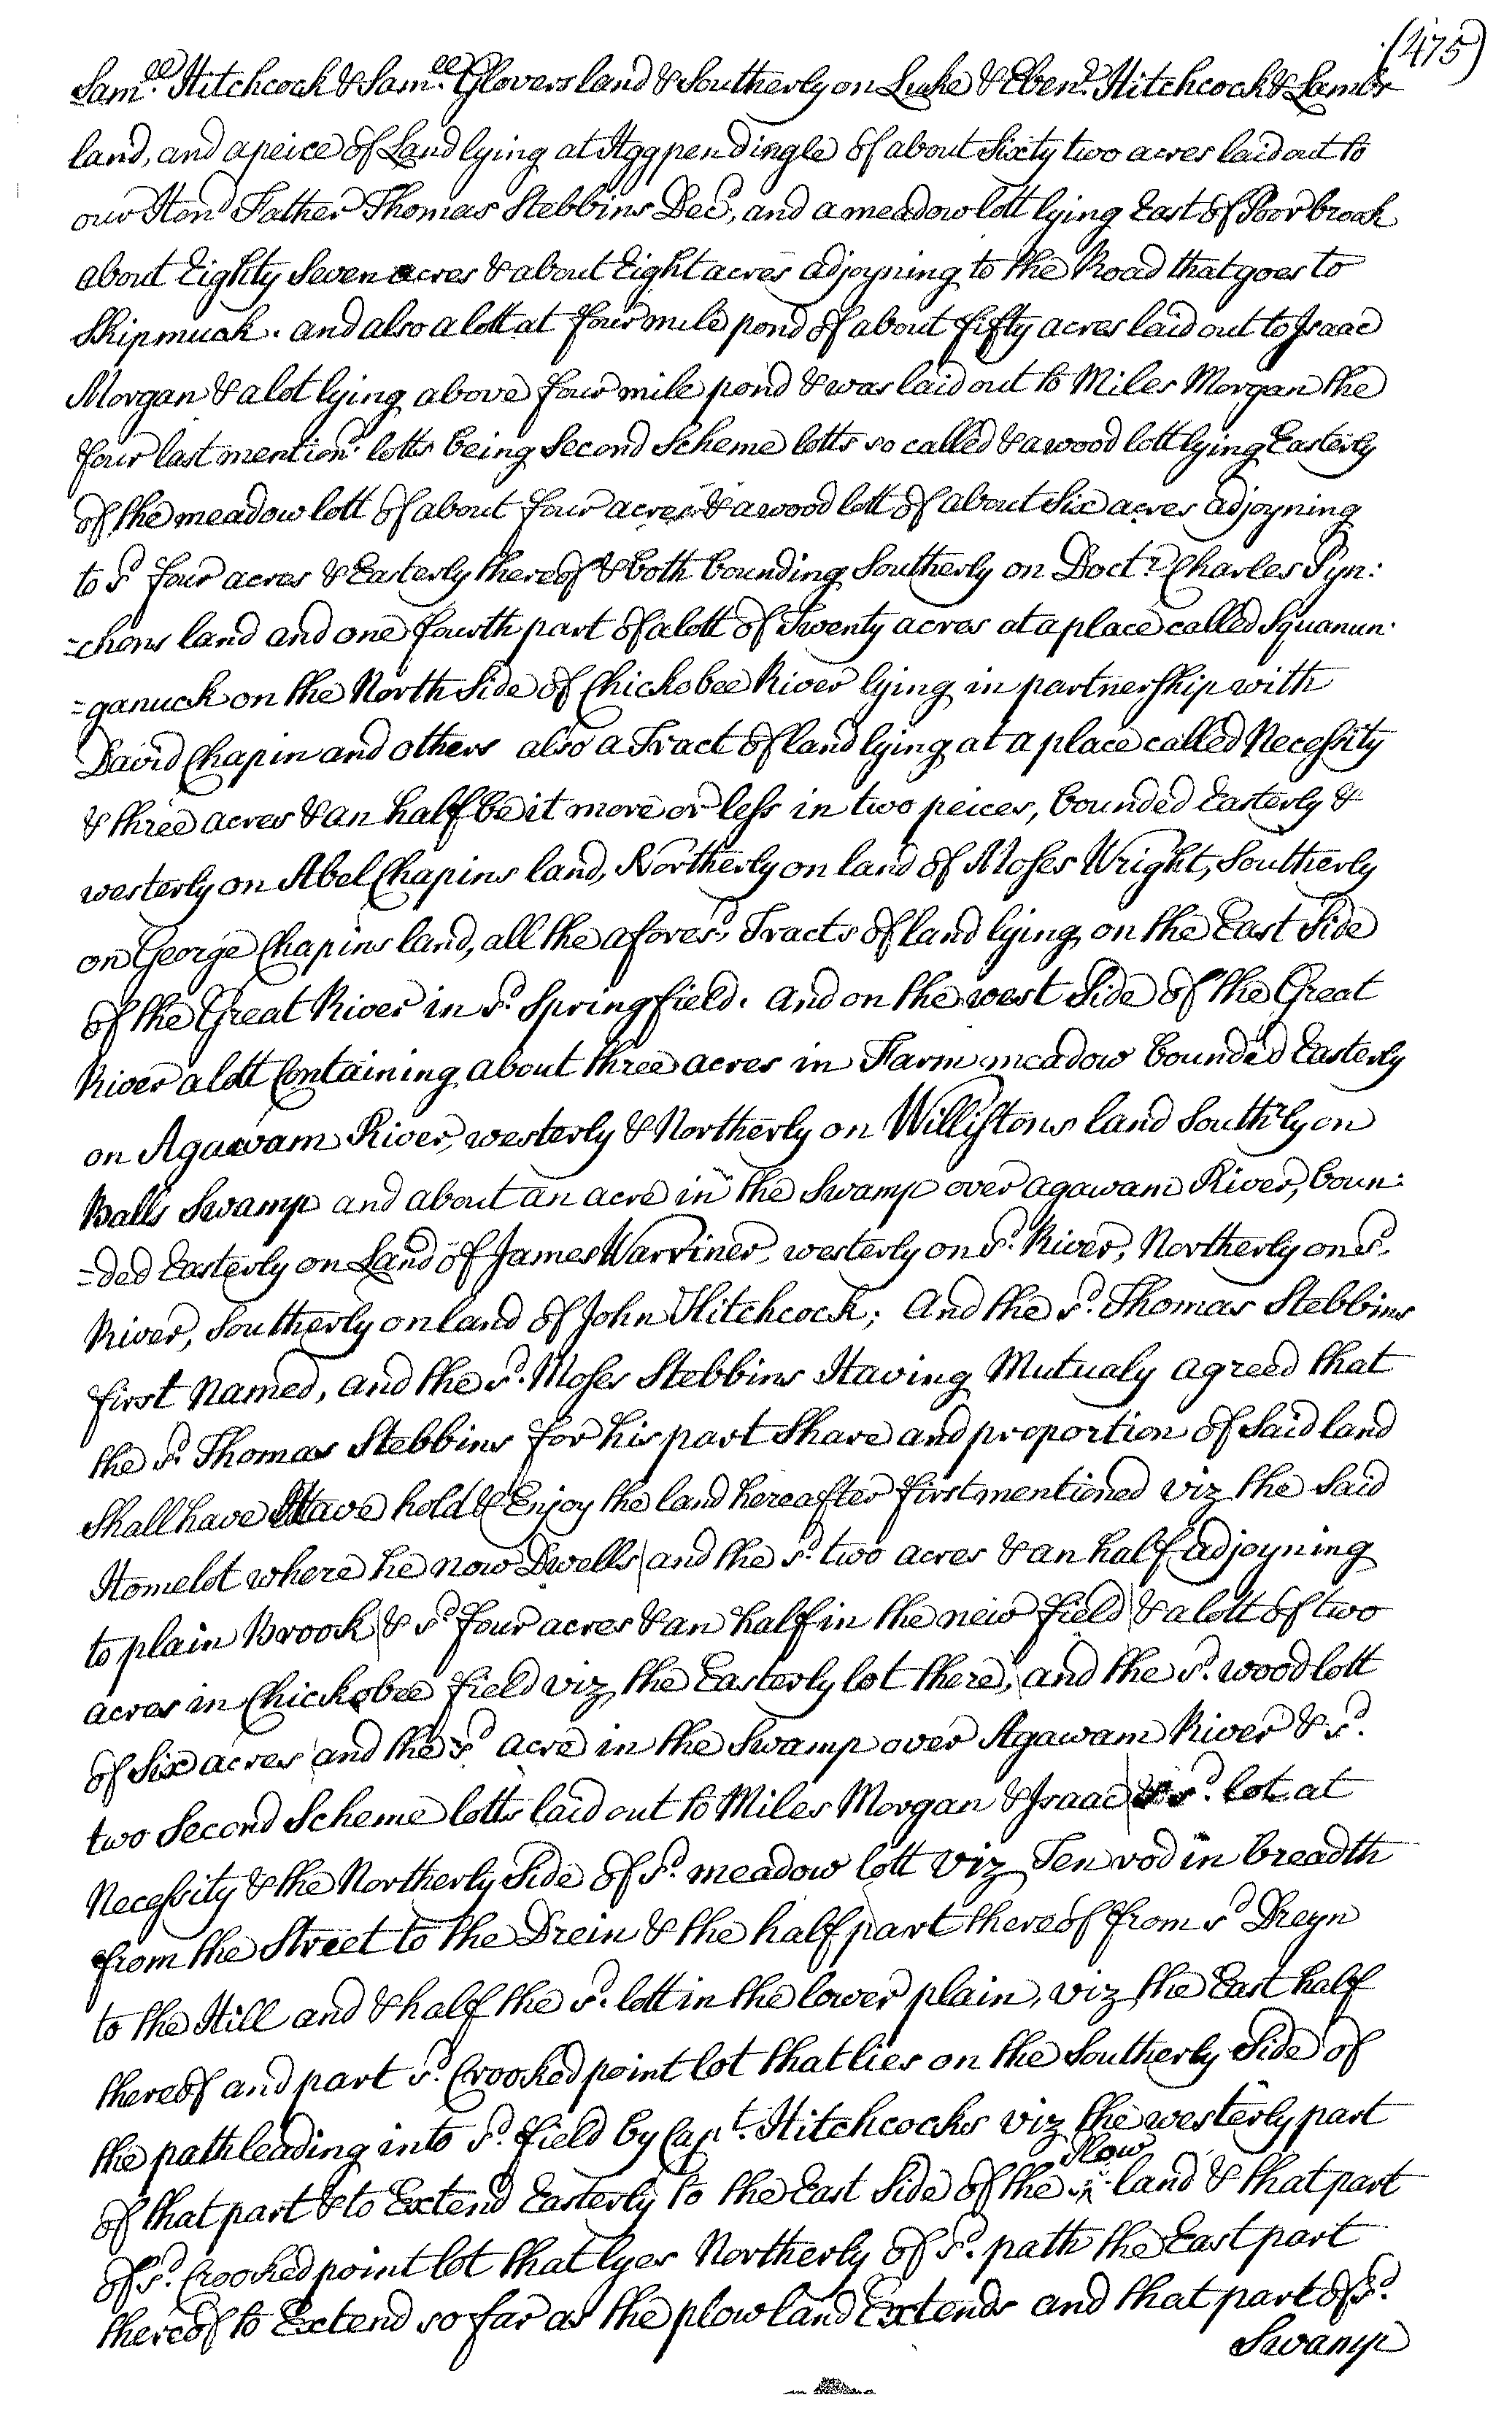 (475)
Sam.ll Hitchcock & Sam.ll Glovers land & Southerly on Luke & Eben.r Hitchcock & Lambs
land, and a peice of Land lying at Aggpendingle of about Sixty two acres laid out to
our Hond Father Thomas Stebbins Decd, and a meadow lott lying East of Poor brook
about Eighty Seven acres & about Eight acres adjoyning to the Road that goes to
Skipmuck. and also a lott at four mile pond of about fifty acres laid out to Isaac
Morgan & a lot lying above four mile pond & was laid out to Miles Morgan the
four last mentiond. lotts being Second Scheme lotts so called & a wood lott lying Easterly
of the meadow lott of about four acres & a wood lott of about Six acres adjoyning
to sd four acres & Easterly thereof & both bounding Southerly on Doct.r Charles Pyn:
=chons land and one fourth part of a lott of Twenty acres at a place called Squanun:
=ganuck on the North Side of Chickobee River lying in partnership with
David Chapin and others also a Tract of land lying at a place called Necessity
& three acres & an half be it more or less in two peices, bounded Easterly &
westerly on Abel Chapins land, Northerly on land of Moses Wright, Southerly
on George Chapins land, all the aforesd. Tracts of land lying on the East Side
of the Great River in sd. Springfield. and on the west Side of the Great
River a lott Containing about three acres in Farm meadow bounded Easterly
on Agawam River, westerly & Northerly on Willistons land South'rly on
Balls Swamp and about an acre in the Swamp over agawam River, boun:
=ded Easterly on Land of James Warriner, westerly on sd. River, Northerly on sd.
River, Southerly on land of John Hitchcock; And the sd. Thomas Stebbins
first Named, and the sd. Moses Stebbins Having Mutualy agreed that
the sd. Thomas Stebbins for his part Share and proportion of Said land
Shall have Have hold & Enjoy the land hereafter first mentioned viz the Said
Homelot where he now Dwells and the sd. two acres & an half adjoyning
to plain Brook & sd four acres & an half in the new field & a lott of two
acres in Chickobee field viz the Easterly lot there, and the sd. wood lott
of Six acres and the sd acre in the Swamp over Agawam River & sd.
two Second Scheme lotts laid out to Miles Morgan & Isaac & sd. lot at
Necessity & the Northerly Side of sd. meadow lott viz Ten rod in breadth
from the Street to the Drein & the half part thereof from sd Dreyn
to the Hill and & half the sd. lott in the lower plain, viz the East half
thereof and part sd. Crooked point lot that lies on the Southerly Side of
the path leading into sd. field by Capt. Hitchcocks viz the westerly part
of that part & to Extend Easterly to the East Side of the Plow land & that part
of sd. Crooked point lot that lyes Northerly of sd. path the East part
thereof to Extend so far as the plow land Extends and that part of sd.
Swamp